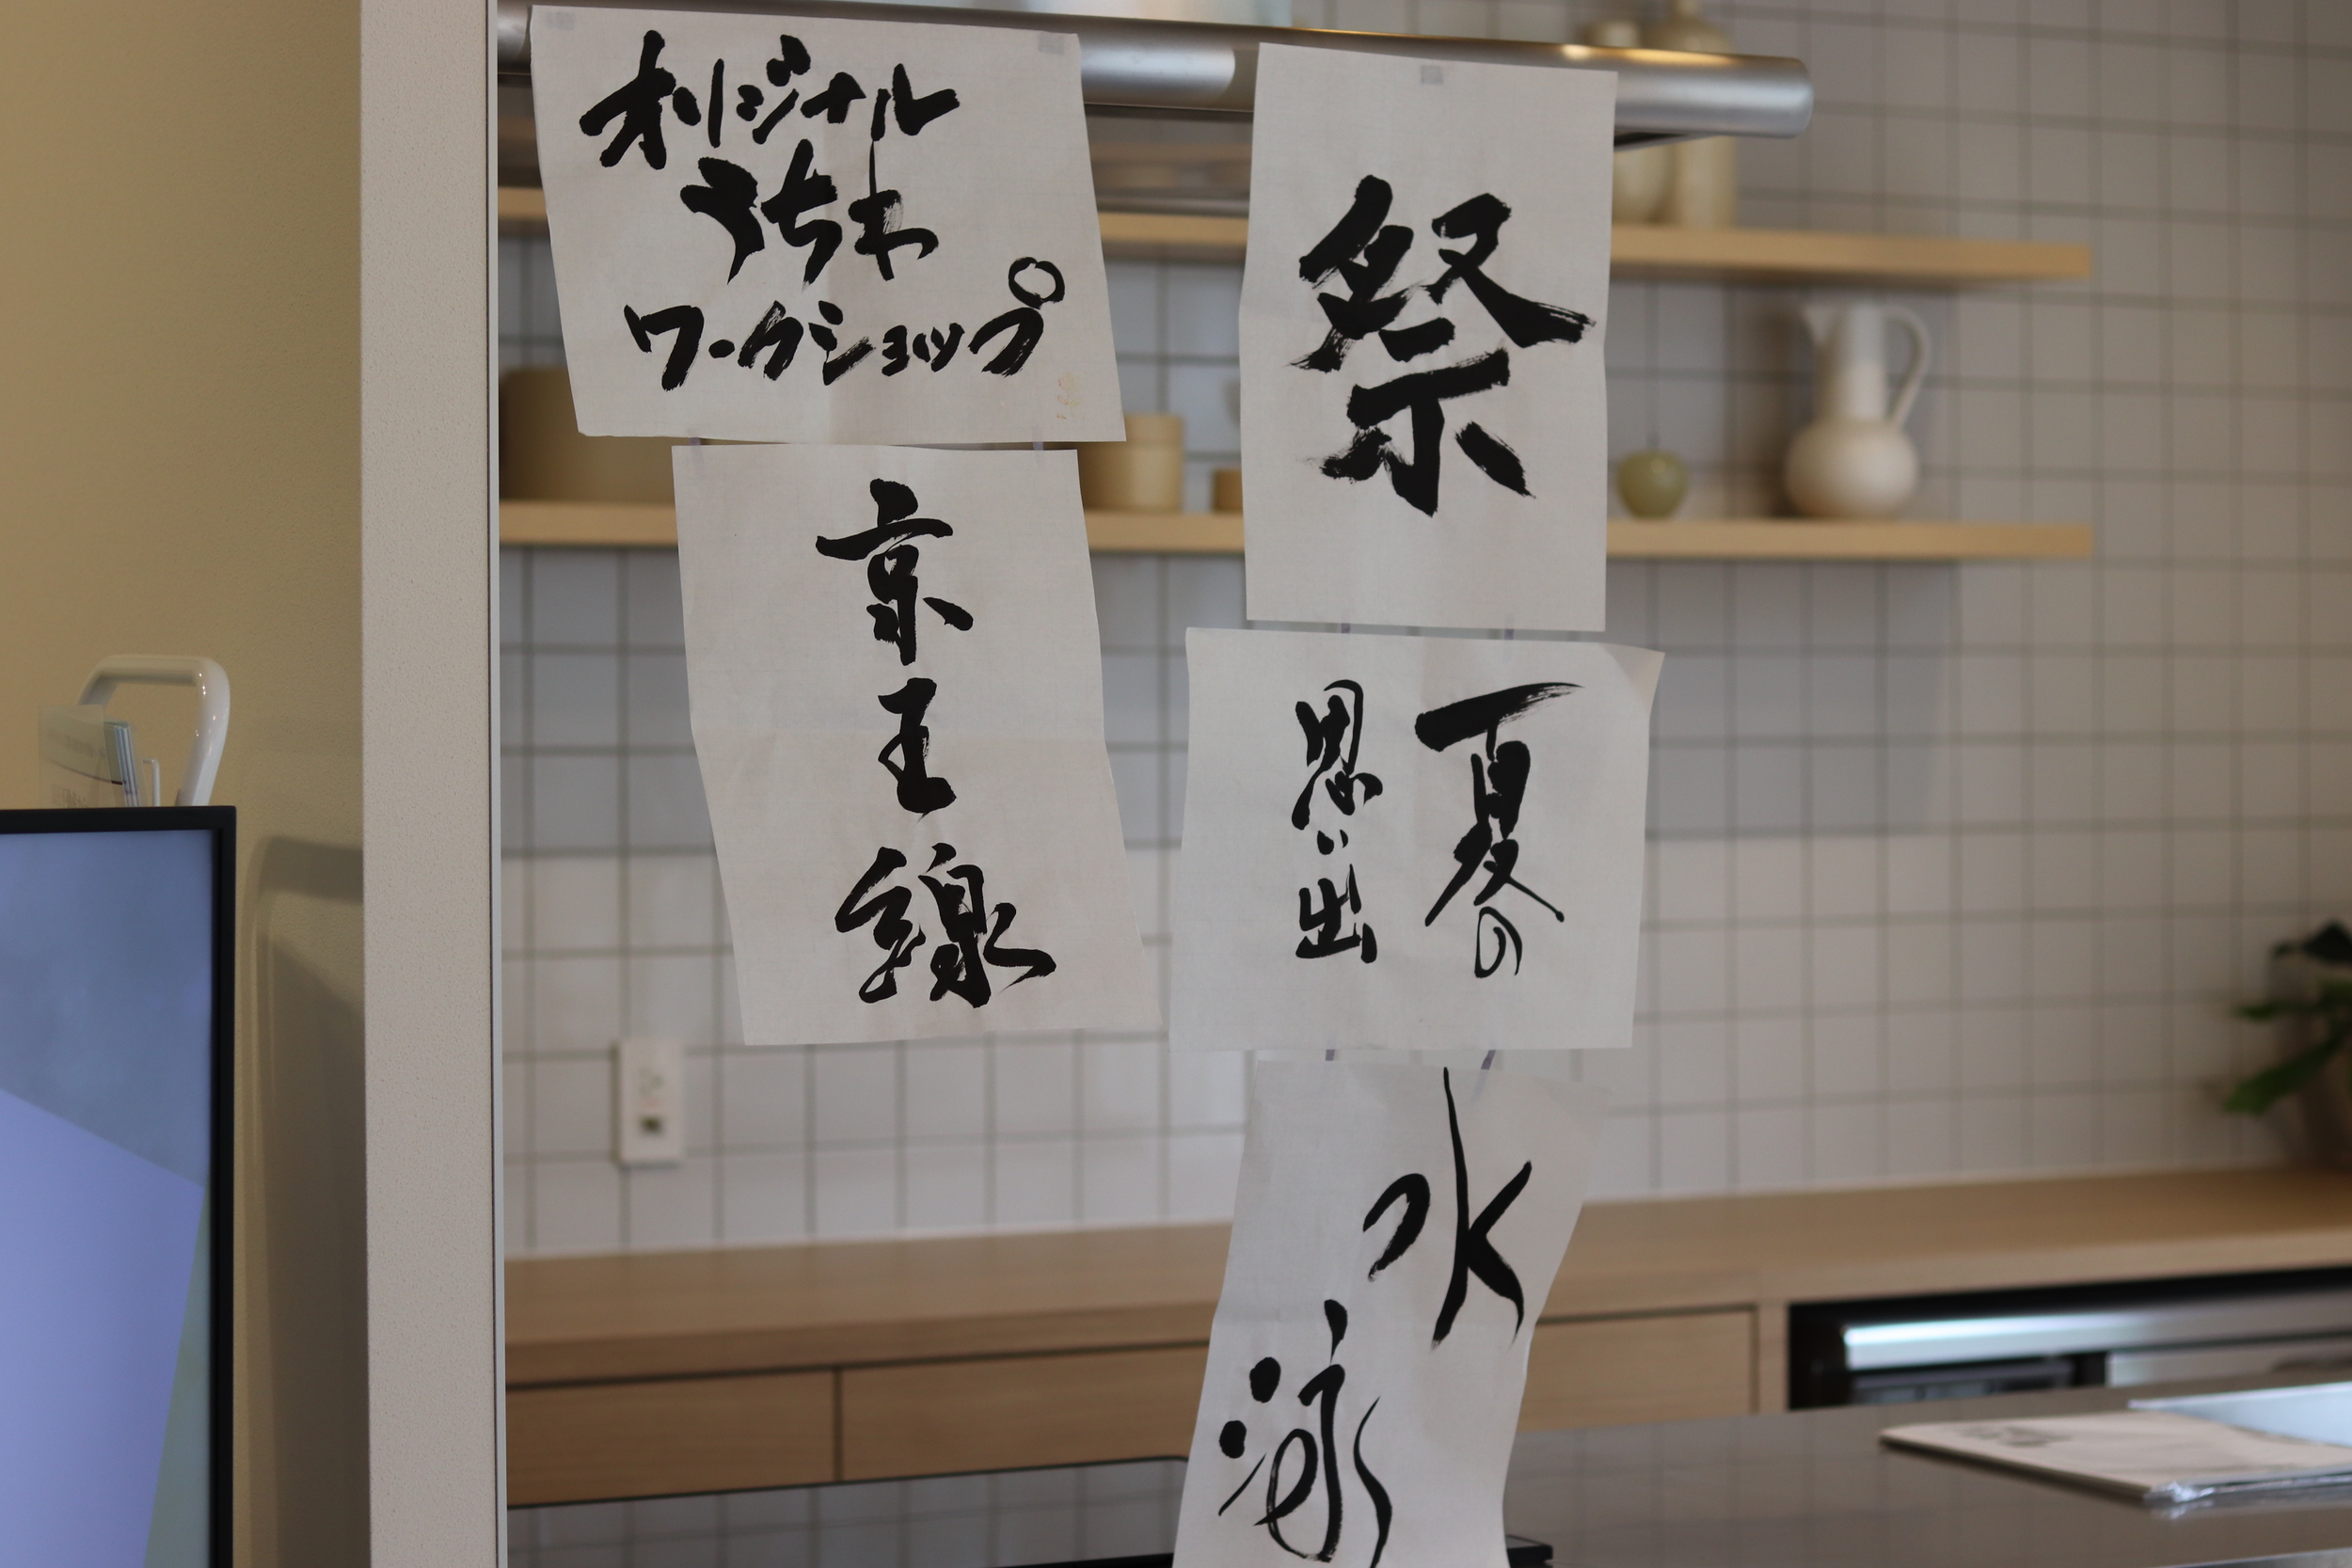 オリジナル
うちわ
ワークショップ
京王線
祭
夏の
思い出
水泳